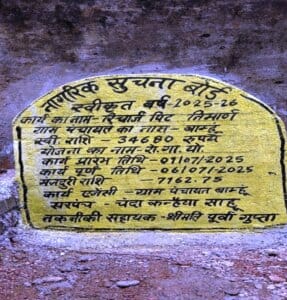 नागरिक सुचना बोर्ड
स्वीकृत वर्ष-2025-26
कार्य का नाम- रिचार्ज पिट निर्माण
ग्राम पंचायत का नाम- बाम्हू
स्वी. राशि - 34680 रूपये
योजना का नाम- म.गा.यो.
कार्य प्रारंभ तिथि-01/07/2025
कार्य पूर्ण तिथि - 06/07/2025
मजदुरी राशि - 7162.75
कार्य एजेंसी - ग्राम पंचायत बाम्हू
सरपंच - चंदा कन्हैया साहू
तकनीकी सहायक - श्रीमति पूर्वा गुप्ता